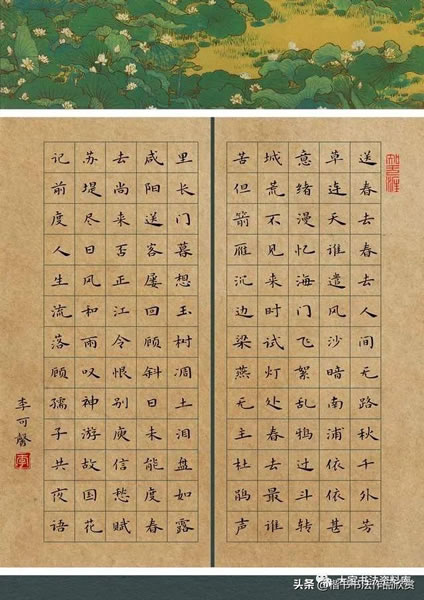 送春去春去人间无路秋千外芳
草连天谁遣风沙暗南浦依依甚
意绪漫忆海门飞絮乱鸦过斗转
城荒不见来时试灯处春去最谁
苦但箭雁沉边梁燕无主杜鹃声
里长门暮想玉树凋土泪盘如露
咸阳送客屡回顾斜日未能度春
去尚来否正江令恨别庾信愁赋
苏堤尽日风和雨叹神游故国花
记前度人生流落顾孺子共夜语
李可馨
头条 @楷书书法作品欣赏